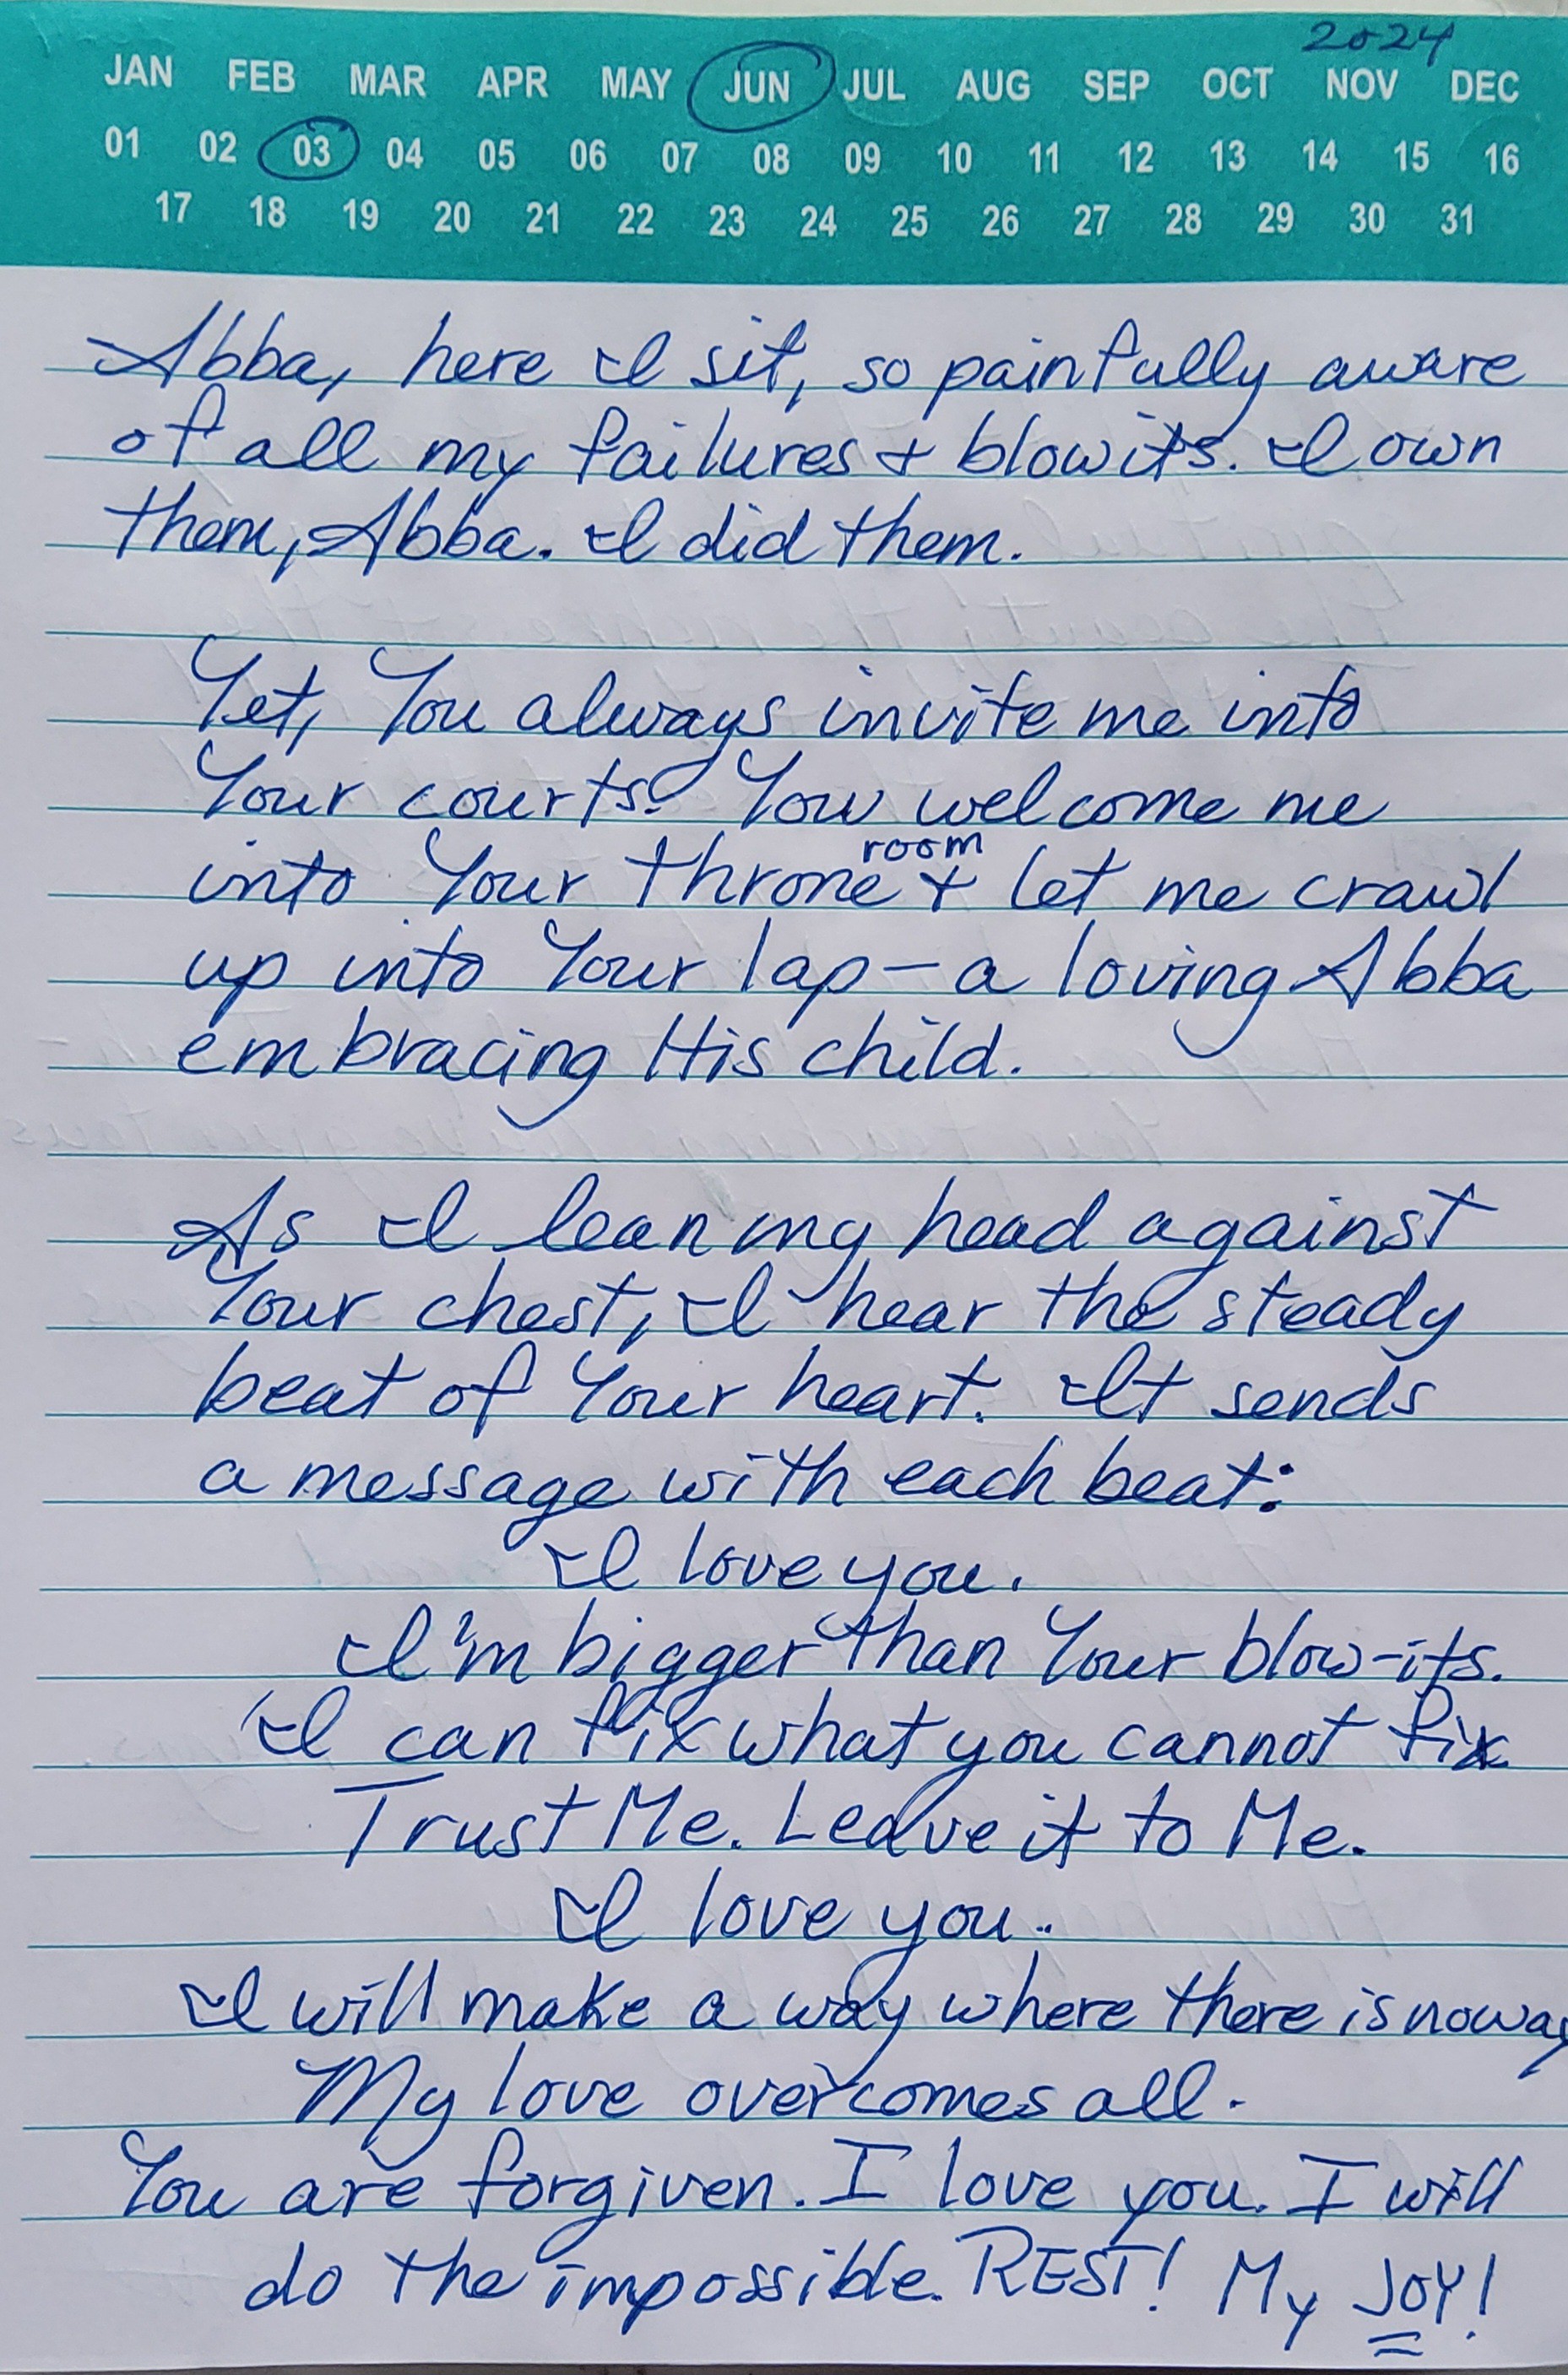 2024
JAN FEB MAR APR MAY JUN JUL AUG SEP OCT NOV DEC
01 02 03 04 05 06 07 08 09 10 11 12 13 14 15 16
17 18 19 20 21 22 23 24 25 26 27 28 29 30 31
Abba, here I sit, so painfully aware
of all my failures + blowits. I own
them, Abba. I did them.
Yet, You always invite me into
Your courts. You welcome me
room
into Your throne + let me crawl
up into Your lap - a loving Abba
embracing His child.
As I lean my head against
Your chest, I hear the steady
beat of Your heart. It sends
a message with each beat:
I love you.
I'm bigger than Your blow-its.
I can fix what you cannot fix
Trust Me. Leave it to Me.
I love you..
I will make a way where there is no way
My love overcomes all.
You are forgiven. I love you. I will
do the impossible. REST! My JOY!